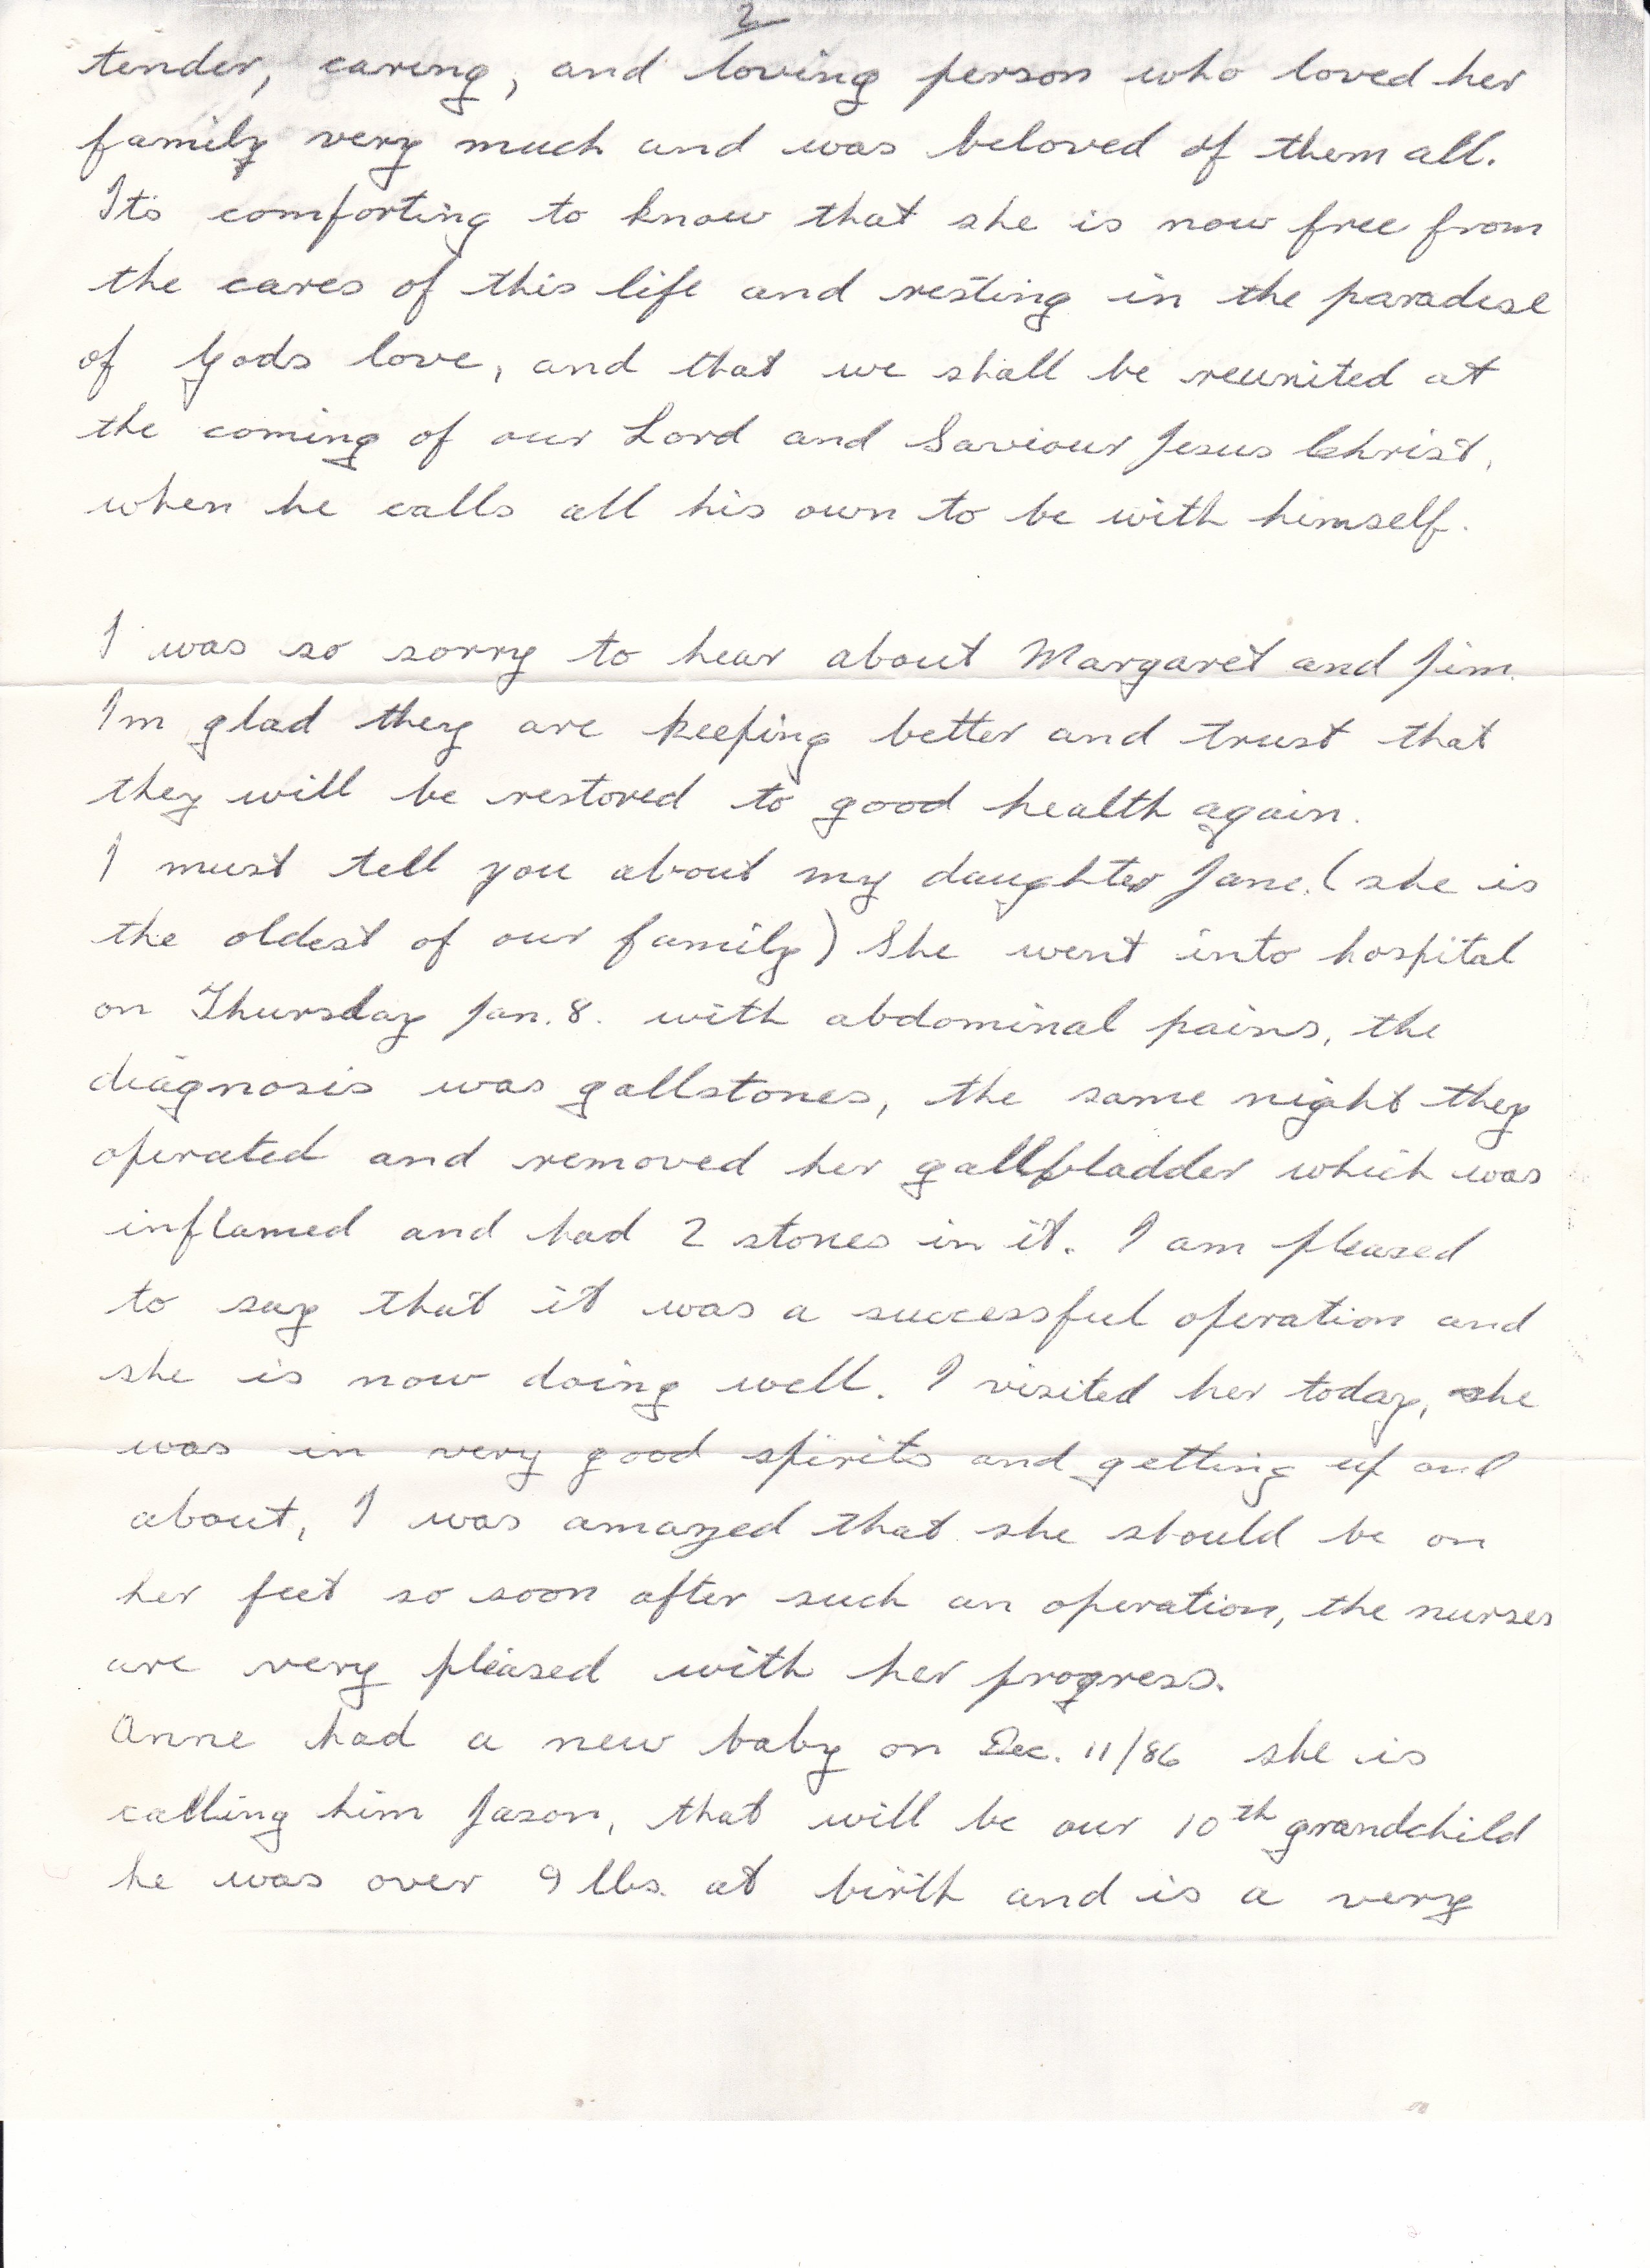 2
tender, caring, and loving person who loved her
family very much and was beloved of them all.
Its comforting to know that she is now free from
the cares of this life and resting in the paradise
of Gods love, and that we shall be reunited at
the coming of our Lord and Saviour Jesus Christ,
when he calls all his own to be with himself.
I was so sorry to hear about Margaret and Jim.
Im glad they are keeping better and trust that
they will be restored to good health again.
I must tell you about my daughter Jane. (she is
the oldest of our family) She went into hospital
on Thursday Jan. 8. with abdominal pains, the
diagnosis was gallstones, the same night they
operated and removed her gallbladder which was
inflamed and had 2 stones in it. I am pleased
to say that it was a successful operation and
she is now doing well. I visited her today, she
was in very good spirits and getting up and
about, I was amazed that she should be on
her feet so soon after such an operation, the nurses
are very pleased with her progress.
Anne had a new baby on Dec. 11/86 she is
calling him Jason, that will be our 10th grandchild
he was over 9 lbs. at birth and is a very